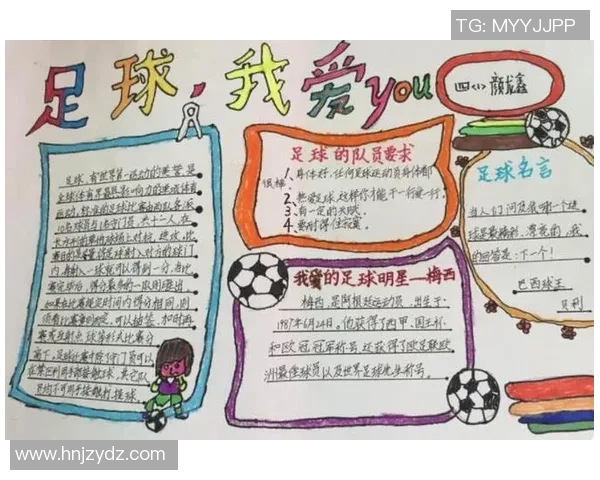 TG: MYYJJPP
足球,我爱you
四(1) 颜鑫
足球,有"世界第一运动"的美誉,是
全球体育界最具影响力的单项体育
运动,标准的足球比赛由两队各派
10名球员与1名守门员,共十二人,在
长方形的草地球场上对抗、进攻,比
赛目的是尽量将足球射入对方的球门
内,每射入一球就可以得到一分,当比
赛完毕后,得分最多的一队则胜出,
如果在比赛规定时间内得分相同,则
须看比赛章则而定,可以抽签、加时再
赛或互射点球等形式比赛分
高下,足球比赛中除了守门员可以
在禁区利用手部接触足球,其它队
员均不可用手接触打、接球。
足球的队员要求
1、身体好,任何足球运动员身体都
很棒。
2、热爱足球,这样你才能干一行爱一行。
3、有一定的天赋。
4、要耐得住寂寞。
我爱的足球明星—梅西
梅西,是阿根廷运动员,出生于
1987年6月24日,他获得了西甲、国王杯
和欧冠冠军称号,还获得了欧足联欧
洲最佳球员以及世界足球先生称号。
足球名言
当人们问及我哪一个进
球是最精彩、漂亮的,我
的回答是:下一个!
巴西球王
贝利
www.hnjzydz.com